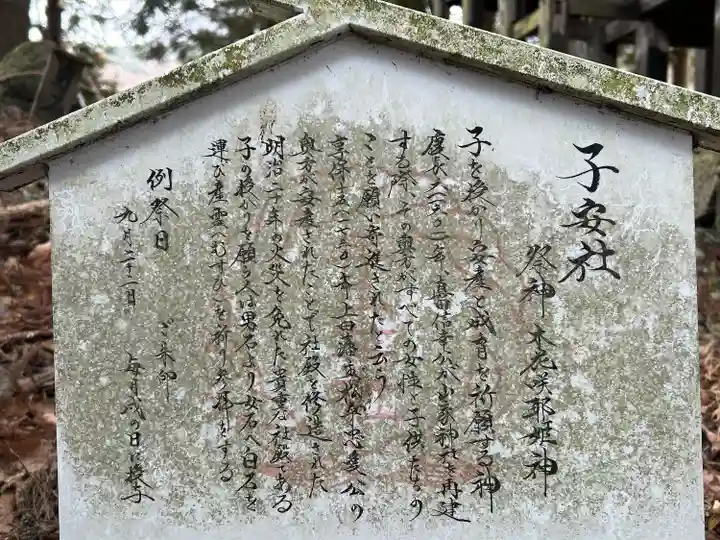 子安社
祭神 木花咲耶姫神
子を授かり安産と成育を祈願する神
慶長六(一六〇一)年真田信幸公が山家神社を再建
する際、その奥方がすべての女性と子供たちの
ことを願い寄進されたと云う
享保十五(一七三〇)年上田藩主松平忠愛公の
奥方が安産されたことで社殿を修造された
明治二十年の火災を免れた貴重な社殿である
子の授かりを願う人は男石より女石へ白石を
運び産霊(むすひ)を祈りお拝をする
例祭日 ご朱印
九月二十一日 毎月戌の日に授与